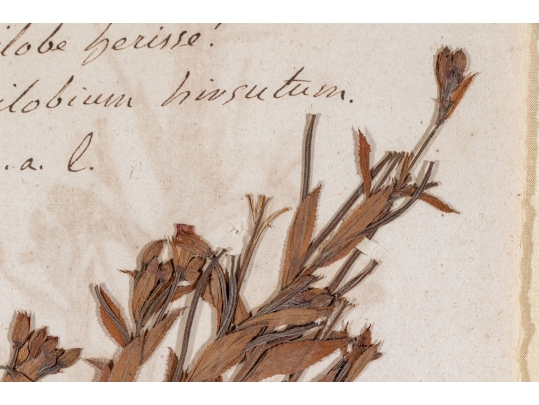 ilobe herissé.
ilobium hirsutum.
.a. l.